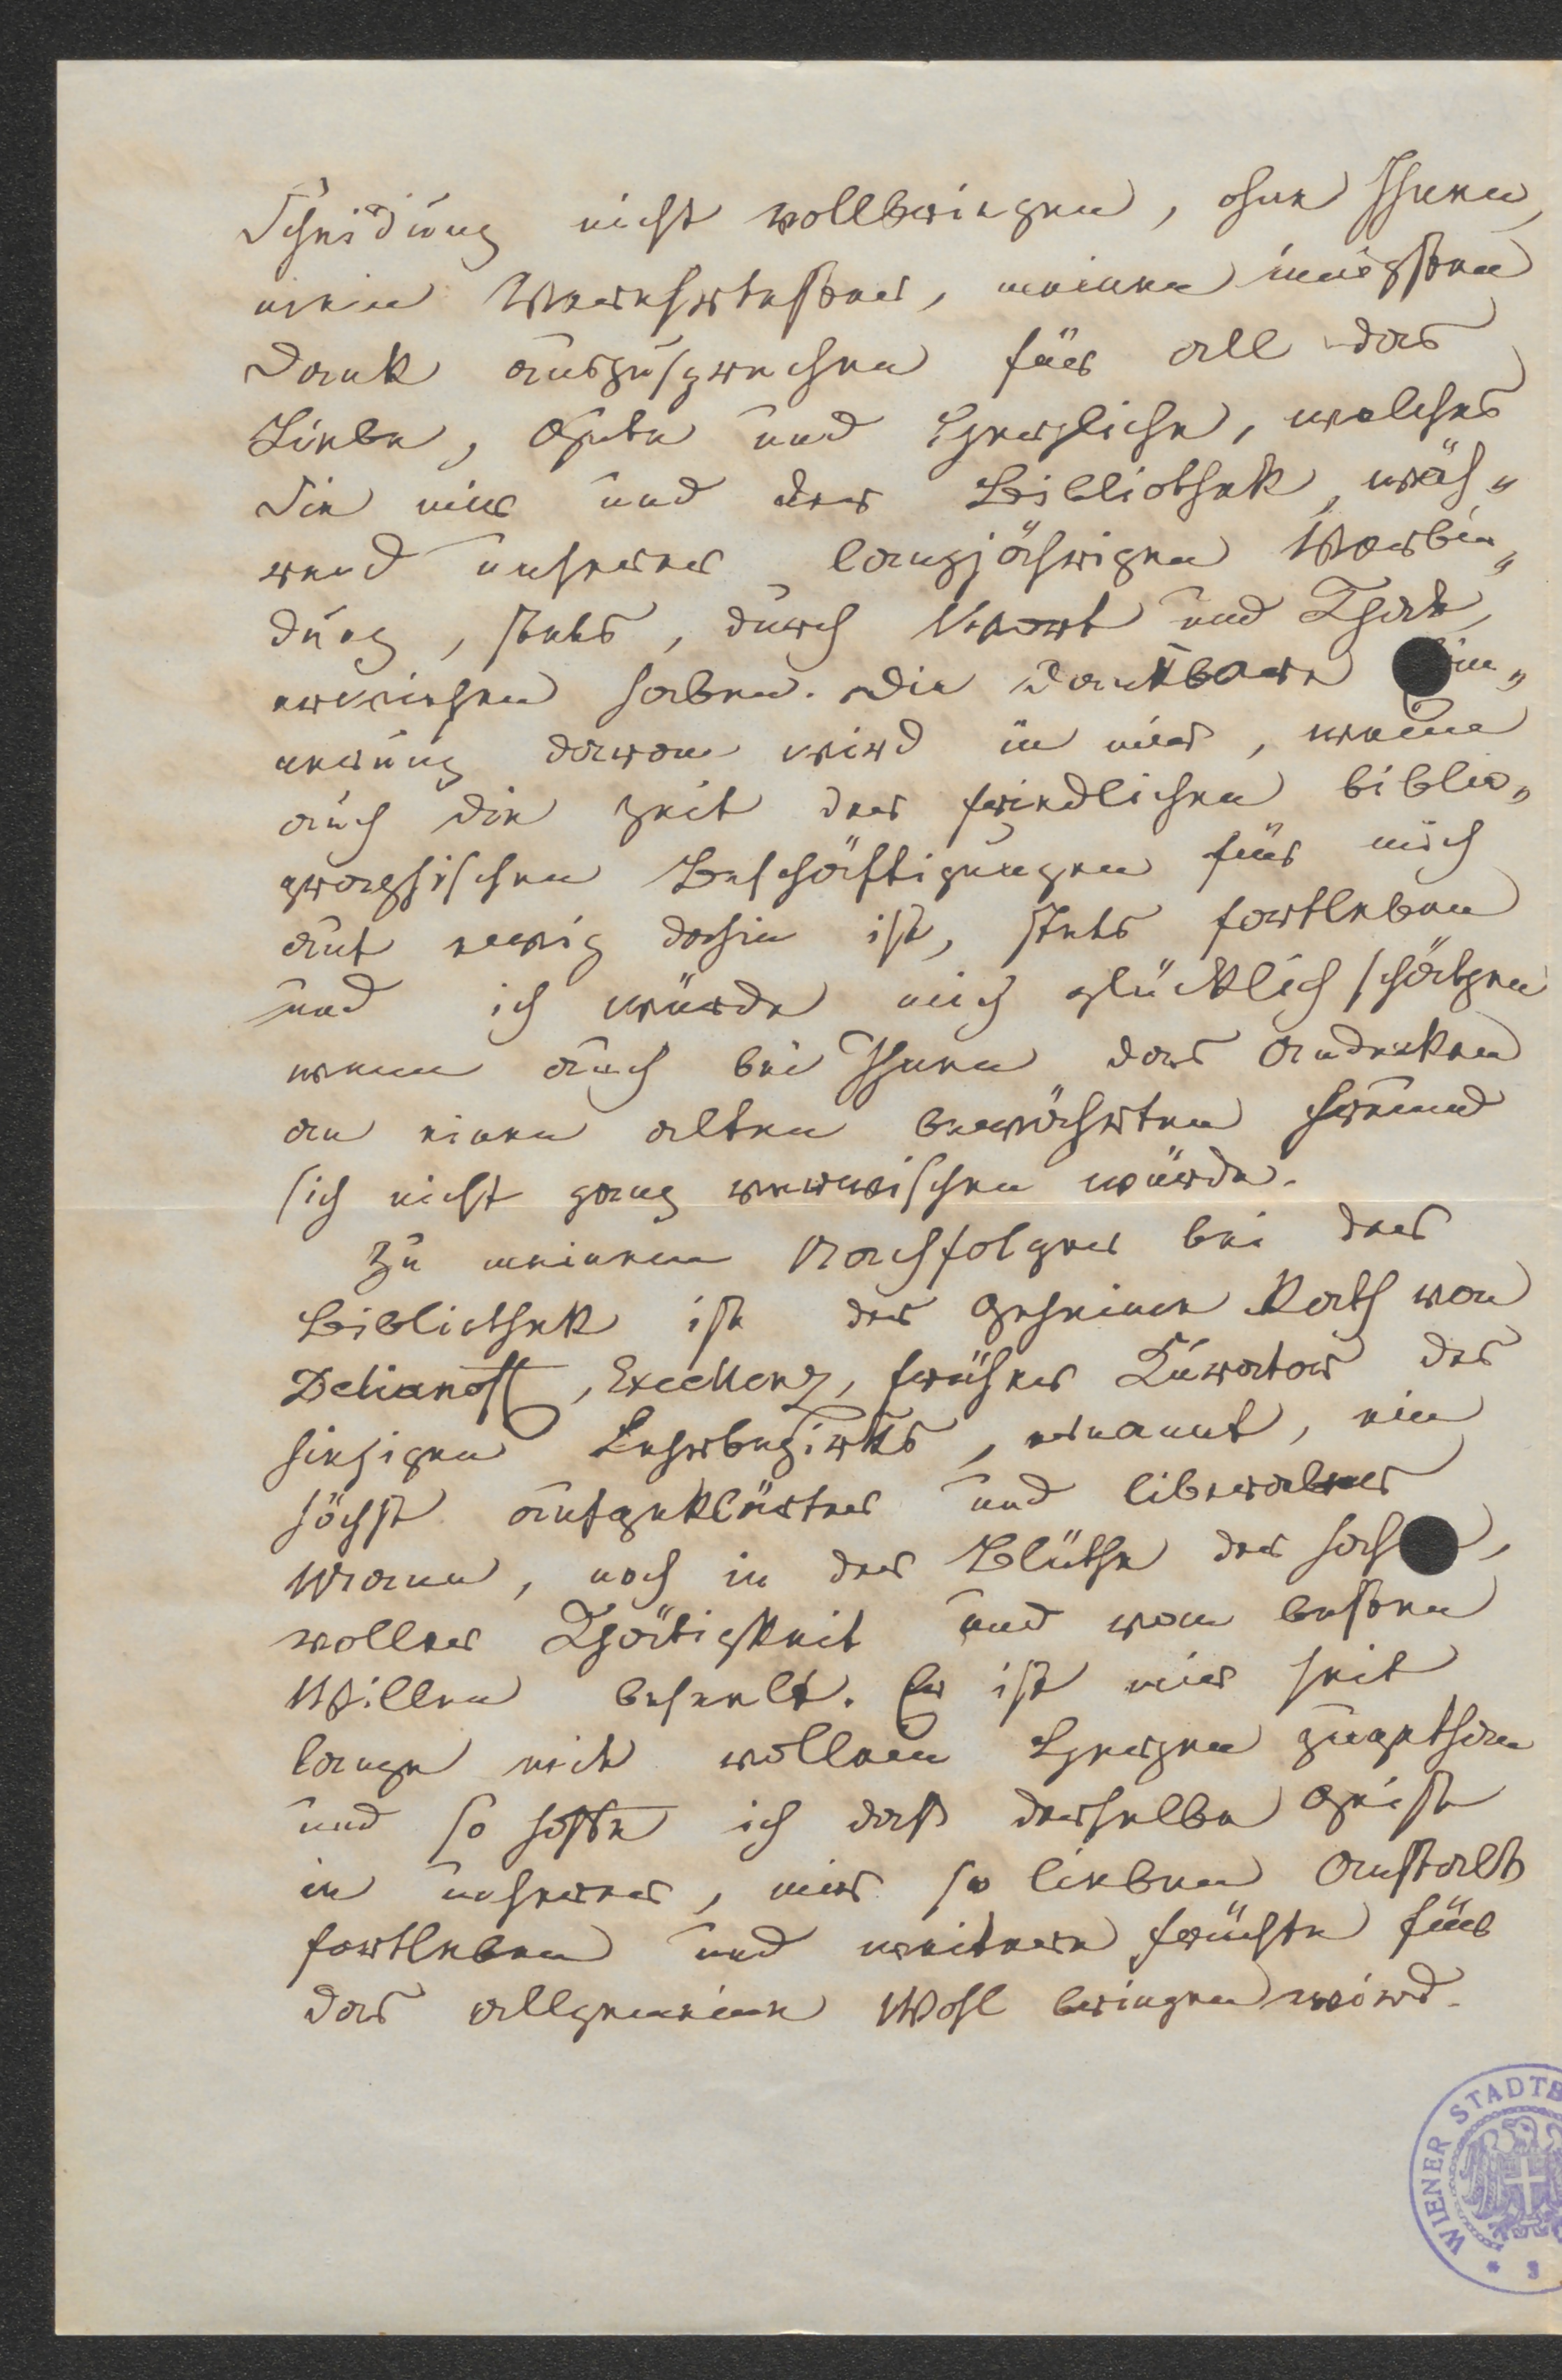 Scheidung nicht vollbringen, ohne Ihnen,
mein Verehrtester, meinen innigsten
Dank auszusprechen für all das
Liebe, Gute und Herzliche, welches
Sie mir und der Bibliothek, wäh„
rend unserer langjährigen Verbin„
dung, stets, durch Wort und That,
erwiesen haben. Die dankbare in„
nerung davon wird in mir, wenn
auch die Zeit der friedlichen biblio„
graphischen Beschäftigungen für mich
auf ewig dahin ist, stets fortleben
und ich würde mich glücklich schätzen
wenn auch bei Ihnen das Andenken
an einen alten bewährten Freund
sich nicht ganz verwischen würde.
Zu meinem Nachfolger bei der
Bibliothek ist der Geheime Rath von
Delianoff, Excellenz, früher Curator des
hiesigen Lehrbezirks, ernannt, ein
höchst aufgeklärter und liberaler
Mann, noch in der Blüthe der Jah
voller Thätigkeit und vom besten
Willen beseelt. Er ist mir seit
lange mit vollem Herzen zugethan
und so hoffe ich daß derselbe Geist
in unserer, mir so lieben Anstalt
fortleben und weitere Früchte für
das allgemeine Wohl bringen wird.
WIENER STADTB